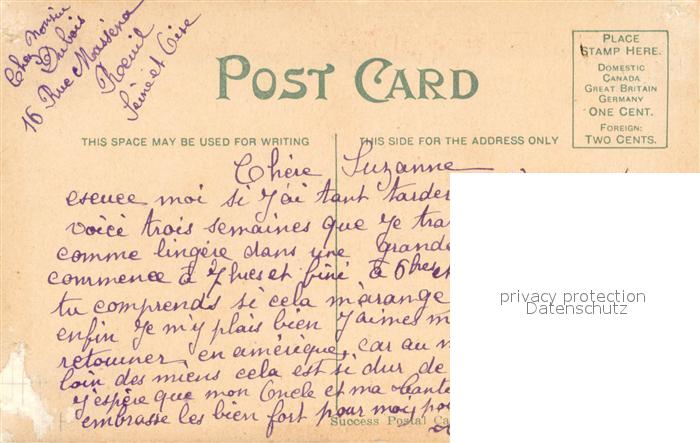 Chez Monsieur
Dubois
16 Rue Masséna
Rueil
Seine et Oise
POST CARD
PLACE
STAMP HERE.
DOMESTIC
CANADA
GREAT BRITAIN
GERMANY
ONE CENT.
FOREIGN:
TWO CENTS.
THIS SPACE MAY BE USED FOR WRITING
THIS SIDE FOR THE ADDRESS ONLY
Chère Suzanne
escuce moi si j'ai tant tarder
voici trois semaines que je tra
comme lingère dans une grande
commence à 7 hres et fini à 6 hres et
tu comprends si cela m'arange
enfin je m'y plais bien j'aimes m
retourner en amérèque, car au m
loin des miens cela est si dur de
j'espère que mon Oncle et ma tante
embrasse les bien fort pour moy po
Success Postal Ca
privacy protection
Datenschutz